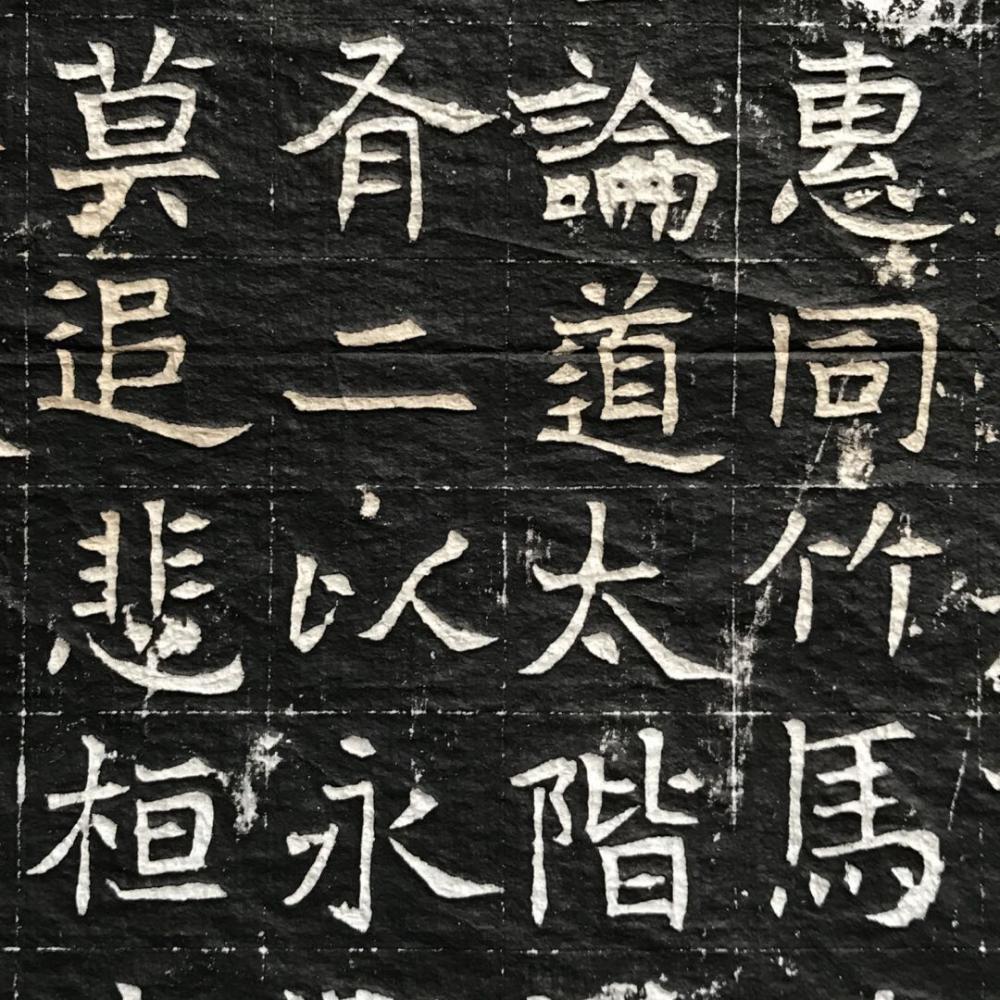 惠同竹馬
論道太階
脊二以永
莫追悲桓